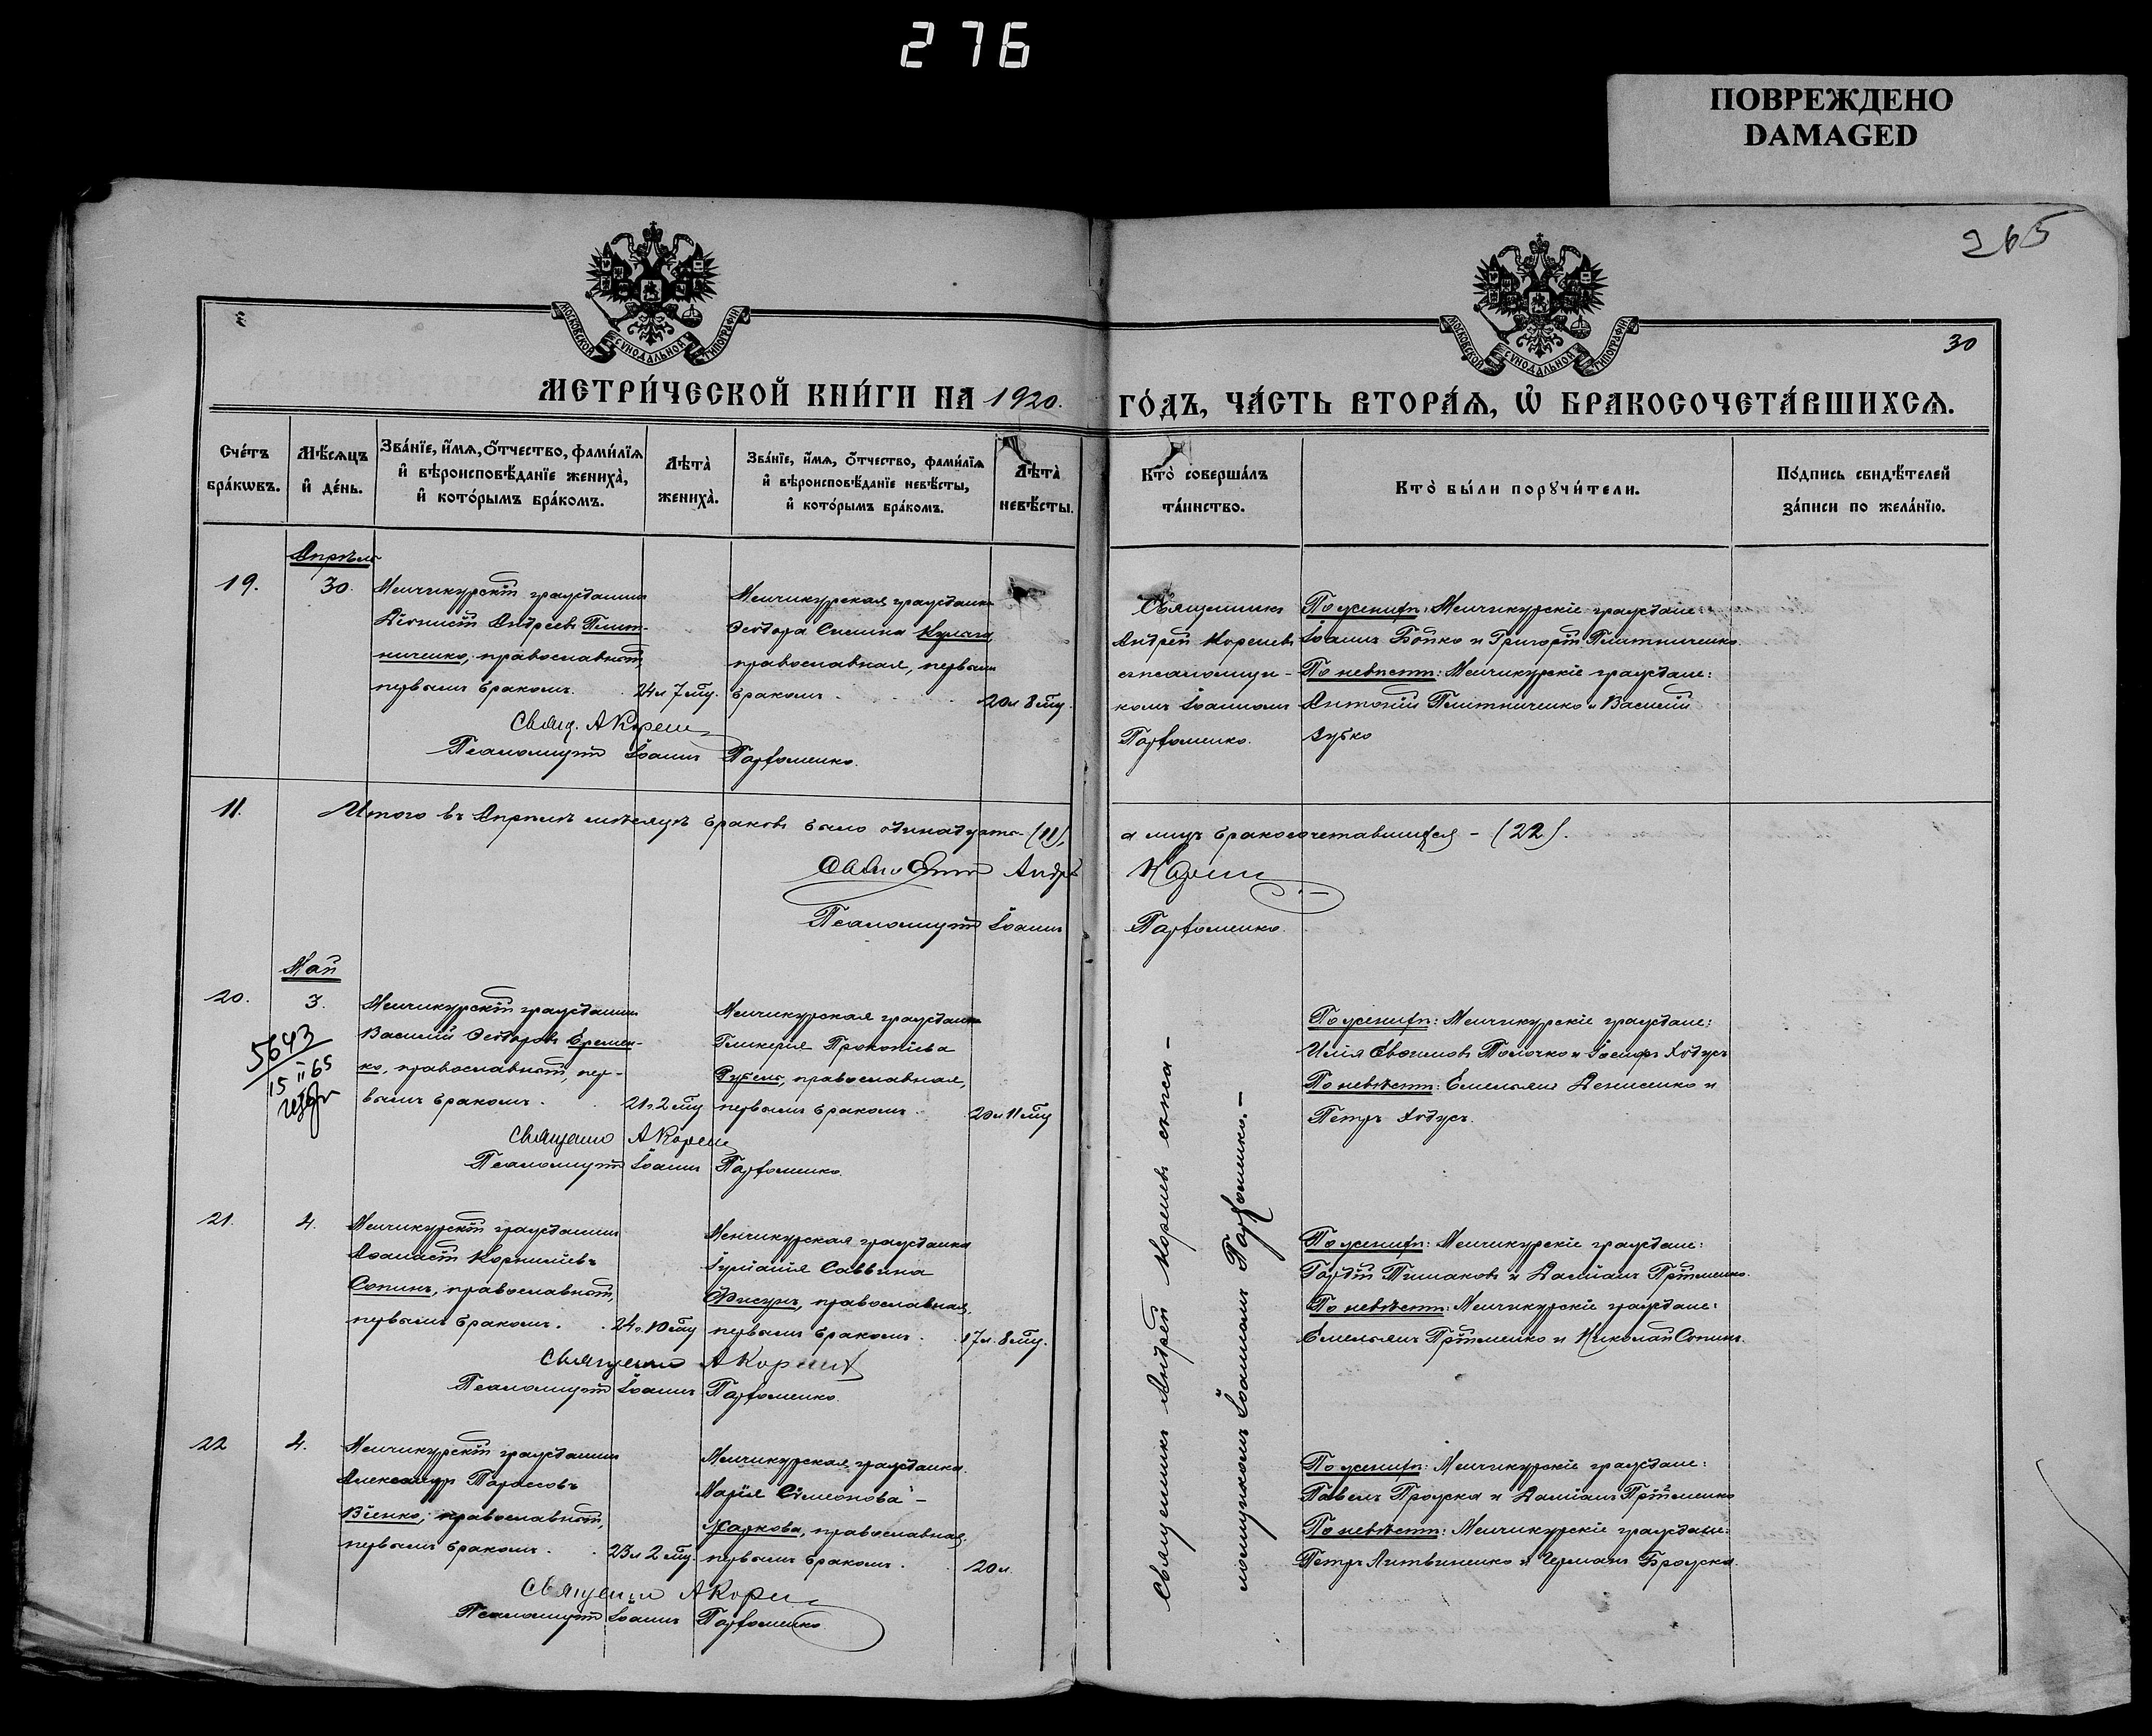 276
ПОВРЕЖДЕНО
DAMAGED
265
30
МОСКОВСКОЙ СѴНОДАЛЬНОЙ ТИПОГРАФІИ
МОСКОВСКОЙ СѴНОДАЛЬНОЙ ТИПОГРАФІИ
МЕТРИ́ЧЕСКОЙ КНИ́ГИ НА 1920. ГО́ДЪ, ЧА́СТЬ ВТОРА́Я, Ѽ БРАКОСОЧЕТА́ВШИХСЯ.
Сче́тъ бра́кѡвъ.
Мѣ́сяцъ и҆ де́нь.
Зва́нїе, и҆́мя, ѻ҆́тчество, фами́лїя
и҆ вѣроисповѣ́данїе жениха̀,
и҆ кото́рымъ бра́комъ.
Лѣта̀ жениха̀.
Зва́нїе, и҆́мя, ѻ҆́тчество, фами́лїя
и҆ вѣроисповѣ́данїе невѣ́сты,
и҆ кото́рымъ бра́комъ.
Лѣта̀ невѣ́сты.
Кто̀ соверша́лъ та́инство.
Кто̀ бы́ли порꙋчи́тели.
По́дпись свидѣ́телей
за́писи по жела́нїю.
Апрѣль
19.
30.
Менчикурскій гражданинъ
Діонисій Андреевъ Плит-
ниченко, православный,
первымъ бракомъ.
24 л 7 мц.
Менчикурская гражданка
Ѳеодора Симина
православная, первымъ
бракомъ
20 л 8 мц.
Священникъ
Андрей Корешевъ
съ псаломщи-
комъ Іоанномъ
Парфоменко.
По женихѣ: Менчикурскіе граждане:
Іоаннъ Бойко и Григорій Плитниченко.
По невѣстѣ: Менчикурскіе граждане:
Антоній Плитниченко и Василій
Зубко
Свящ. А Кореш
Псаломщикъ Іоаннъ Парфоменко.
11.
Итого въ Апрѣлѣ мѣсяцѣ браковъ было одинадцать (11), а лицъ бракосочетавшихся - (22).
Андрей
Псаломщикъ Іоаннъ Парфоменко.
Май
20.
3.
5643
15 II 65
Менчикурскій гражданинъ
Василій Ѳеодоровъ Еремен-
ко, православный, пер-
вымъ бракомъ.
21 л. 2 мц
Менчикурская гражданка
Гликерія Прокопіева
Рубель, православная,
первымъ бракомъ.
20 л 11 мц
По женихѣ: Менчикурскіе граждане:
Илія Евѳимовъ Толочко и Іосифъ Ходусъ
По невѣстѣ: Емельянъ Денисенко и
Петръ Ходусъ.
Священ А Кореш
Псаломщикъ Іоаннъ Парфоменко.
21.
4.
Менчикурскій гражданинъ
Аѳанасій Корниліевъ
Сопинъ, православный,
первымъ бракомъ.
24 л. 10 мц
Менчикурская гражданка
Іуліанія Саввина
Фисунъ, православная,
первымъ бракомъ.
17 л. 8 мц.
По женихѣ: Менчикурскіе граждане:
Гордій Тимаковъ и Даміанъ Прійменко.
По невѣстѣ: Менчикурскіе граждане:
Емельянъ Прійменко и Николай Сопинъ.
Священ А Кореш
Псаломщикъ Іоаннъ Парфоменко.
22
4.
Менчикурскій гражданинъ
Александръ Тарасовъ
Віенко, православный,
первымъ бракомъ.
23 л 2 мц.
Менчикурская гражданка
Марія Симеонова
Жаркова, православная,
первымъ бракомъ.
20 л.
По женихѣ: Менчикурскіе граждане:
Павелъ и Даміанъ Прійменко
По невѣстѣ: Менчикурскіе граждане:
Петръ Литвиненко и Германъ
Священ А Кореш
Псаломщикъ Іоаннъ Парфоменко
Священникъ Андрей Корешевъ съ пса-
ломщикомъ Іоанномъ Парфоменко. -